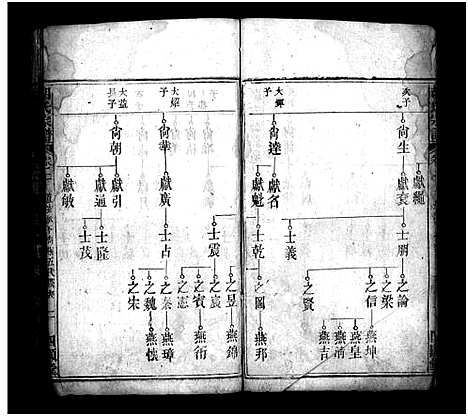 次子
尚生
獻龍
獻袞
士朋
之論
之梁
之信
燕坤
燕皇
燕清
燕吉
之賢
士義
大輝
子
尚達
獻名
獻魁
士乾
之圖
燕邦
大耀
子
尚華
獻廣
士震
之昱
燕錦
之宸
士占
之賓
燕衔
之憲
之泰
燕璋
之魏
燕懷
之朱
大益
長子
尚朝
獻引
獻通
士隆
士茂
獻敏